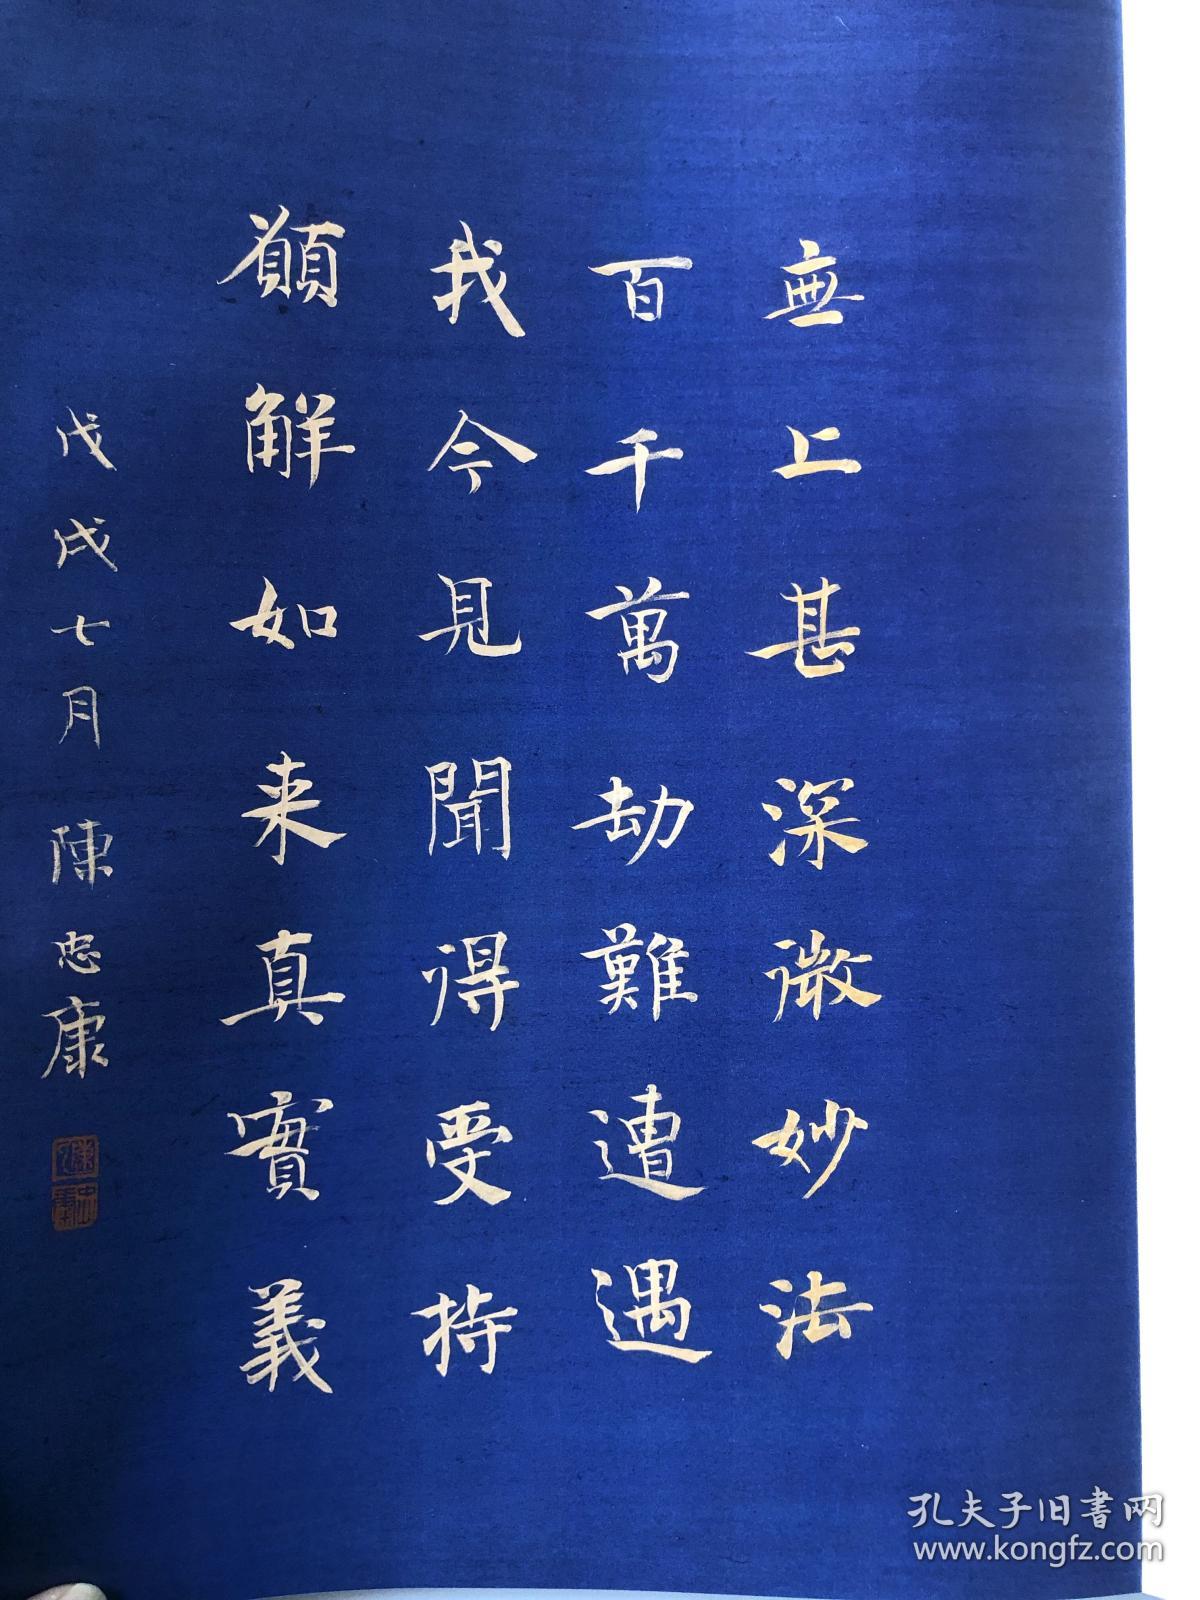 無上甚深微妙法
百千萬劫難遭遇
我今見聞得受持
願解如来真實義
戊戌七月陳忠康
孔夫子旧書网
www.kongfz.com